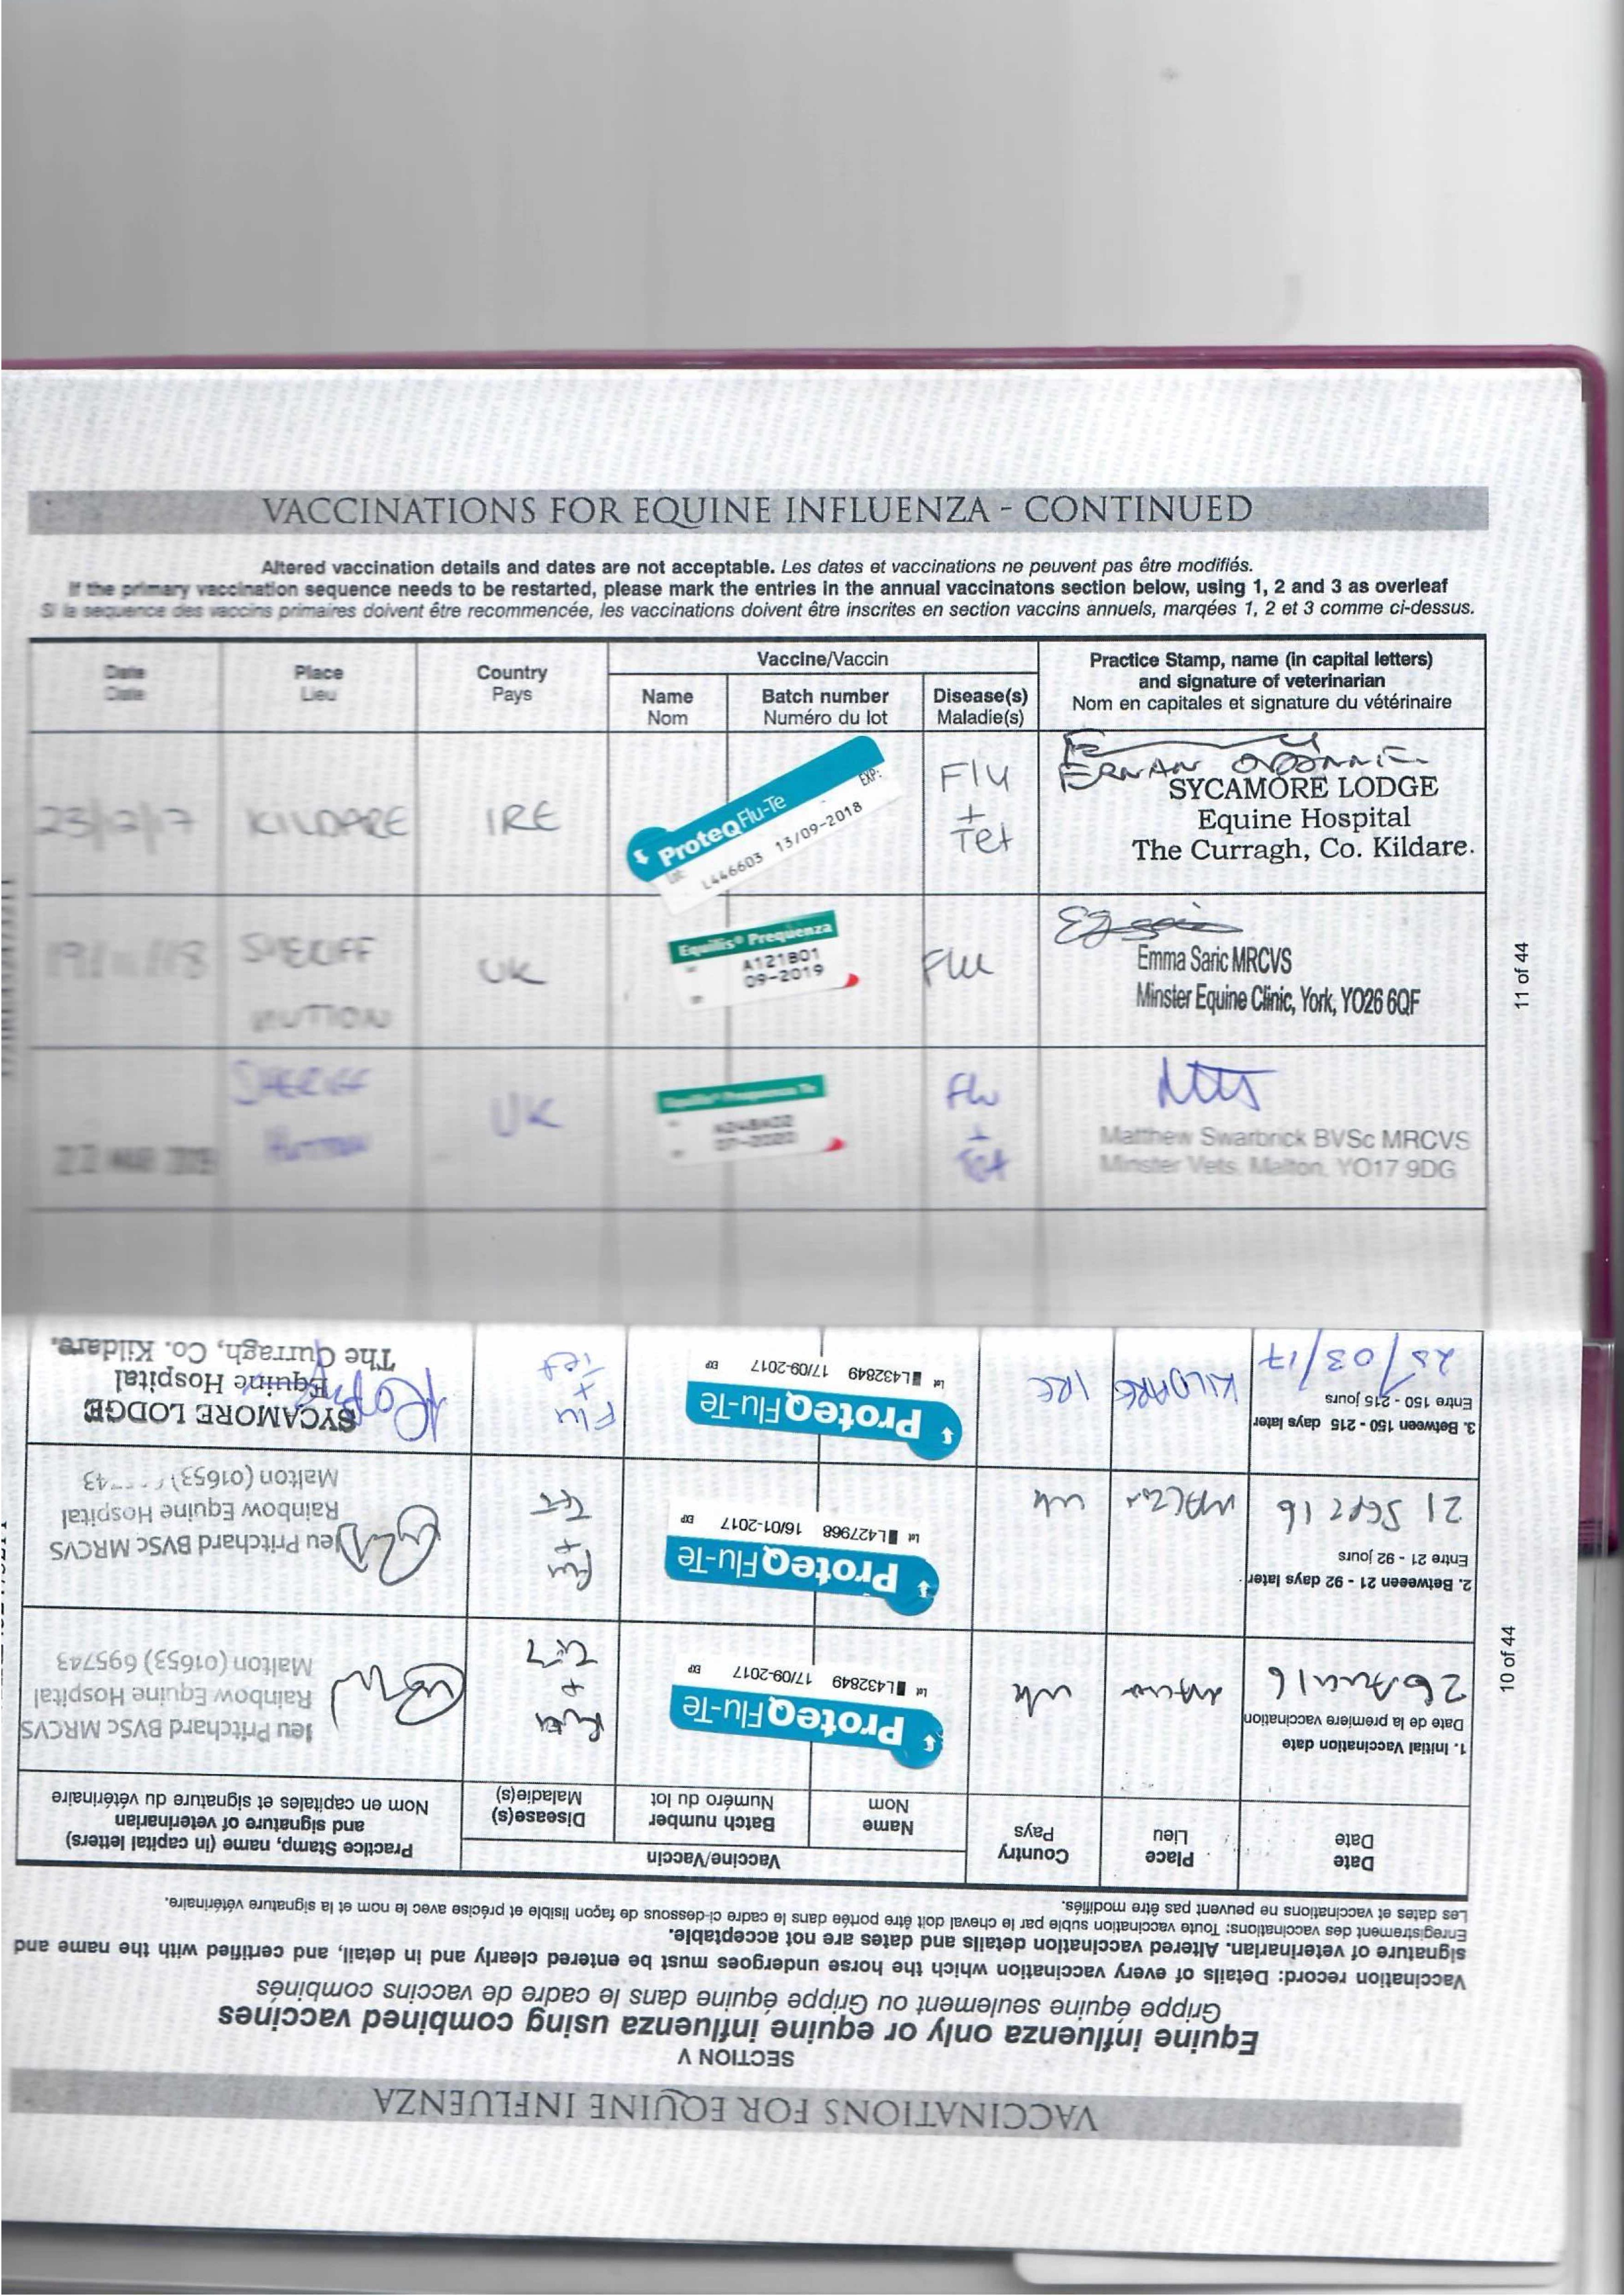 VACCINATIONS FOR EQUINE INFLUENZA - CONTINUED
Altered vaccination details and dates are not acceptable. Les dates et vaccinations ne peuvent pas être modifiés.
If the primary vaccination sequence needs to be restarted, please mark the entries in the annual vaccinatons section below, using 1, 2 and 3 as overleaf
Si la sequence des vaccins primaires doivent être recommencée, les vaccinations doivent être inscrites en section vaccins annuels, marqées 1, 2 et 3 comme ci-dessus.
Date
Date
Place
Lieu
Country
Pays
Vaccine/Vaccin
Name
Nom
Batch number
Numéro du lot
Disease(s)
Maladie(s)
Practice Stamp, name (in capital letters)
and signature of veterinarian
Nom en capitales et signature du vétérinaire
KILDARE
IRE
ProteqFlu-Te
Lot: EXP:
L446603 13/09-2018
Flu
+
Tet
SYCAMORE LODGE
Equine Hospital
The Curragh, Co. Kildare.
SHERIFF
HUTTON
UK
Equilis® Prequenza
A121B01
09-2019
Flu
Emma Saric MRCVS
Minster Equine Clinic, York, YO26 6QF
SHERIFF
HUTTON
UK
Equilis® Prequenza Te
07-2020
Flu
+
Tet
Matthew Swarbrick BVSc MRCVS
Minster Vets, Malton, YO17 9DG
11 of 44
VACCINATIONS FOR EQUINE INFLUENZA
SECTION V
Equine influenza only or equine influenza using combined vaccines
Grippe équine seulement ou Grippe équine dans le cadre de vaccins combinés
Vaccination record: Details of every vaccination which the horse undergoes must be entered clearly and in detail, and certified with the name and
signature of veterinarian. Altered vaccination details and dates are not acceptable.
Enregistrement des vaccinations: Toute vaccination subie par le cheval doit être portée dans le cadre ci-dessous de façon lisible et précise avec le nom et la signature vétérinaire.
Les dates et vaccinations ne peuvent pas être modifiés.
Date
Date
Place
Lieu
Country
Pays
Vaccine/Vaccin
Name
Nom
Batch number
Numéro du lot
Disease(s)
Maladie(s)
Practice Stamp, name (in capital letters)
and signature of veterinarian
Nom en capitales et signature du vétérinaire
1. Initial Vaccination date
Date de la premiere vaccination
UK
ProteqFlu-Te
Lot L432849 17/09-2017 EXP
Ieu Pritchard BVSc MRCVS
Rainbow Equine Hospital
Malton (01653) 695743
2. Betweeen 21 - 92 days later
Entre 21 - 92 jours
21 SEPT 16
UK
ProteqFlu-Te
Lot L427968 16/01-2017 EXP
Ieu Pritchard BVSc MRCVS
Rainbow Equine Hospital
Malton (01653)
3. Between 150 - 215 days later
Entre 150 - 215 jours
KILDARE
IRE
ProteqFlu-Te
Lot L432849 17/09-2017 EXP
Flu
+
Tet
SYCAMORE LODGE
Equine Hospital
The Curragh, Co. Kildare.
10 of 44